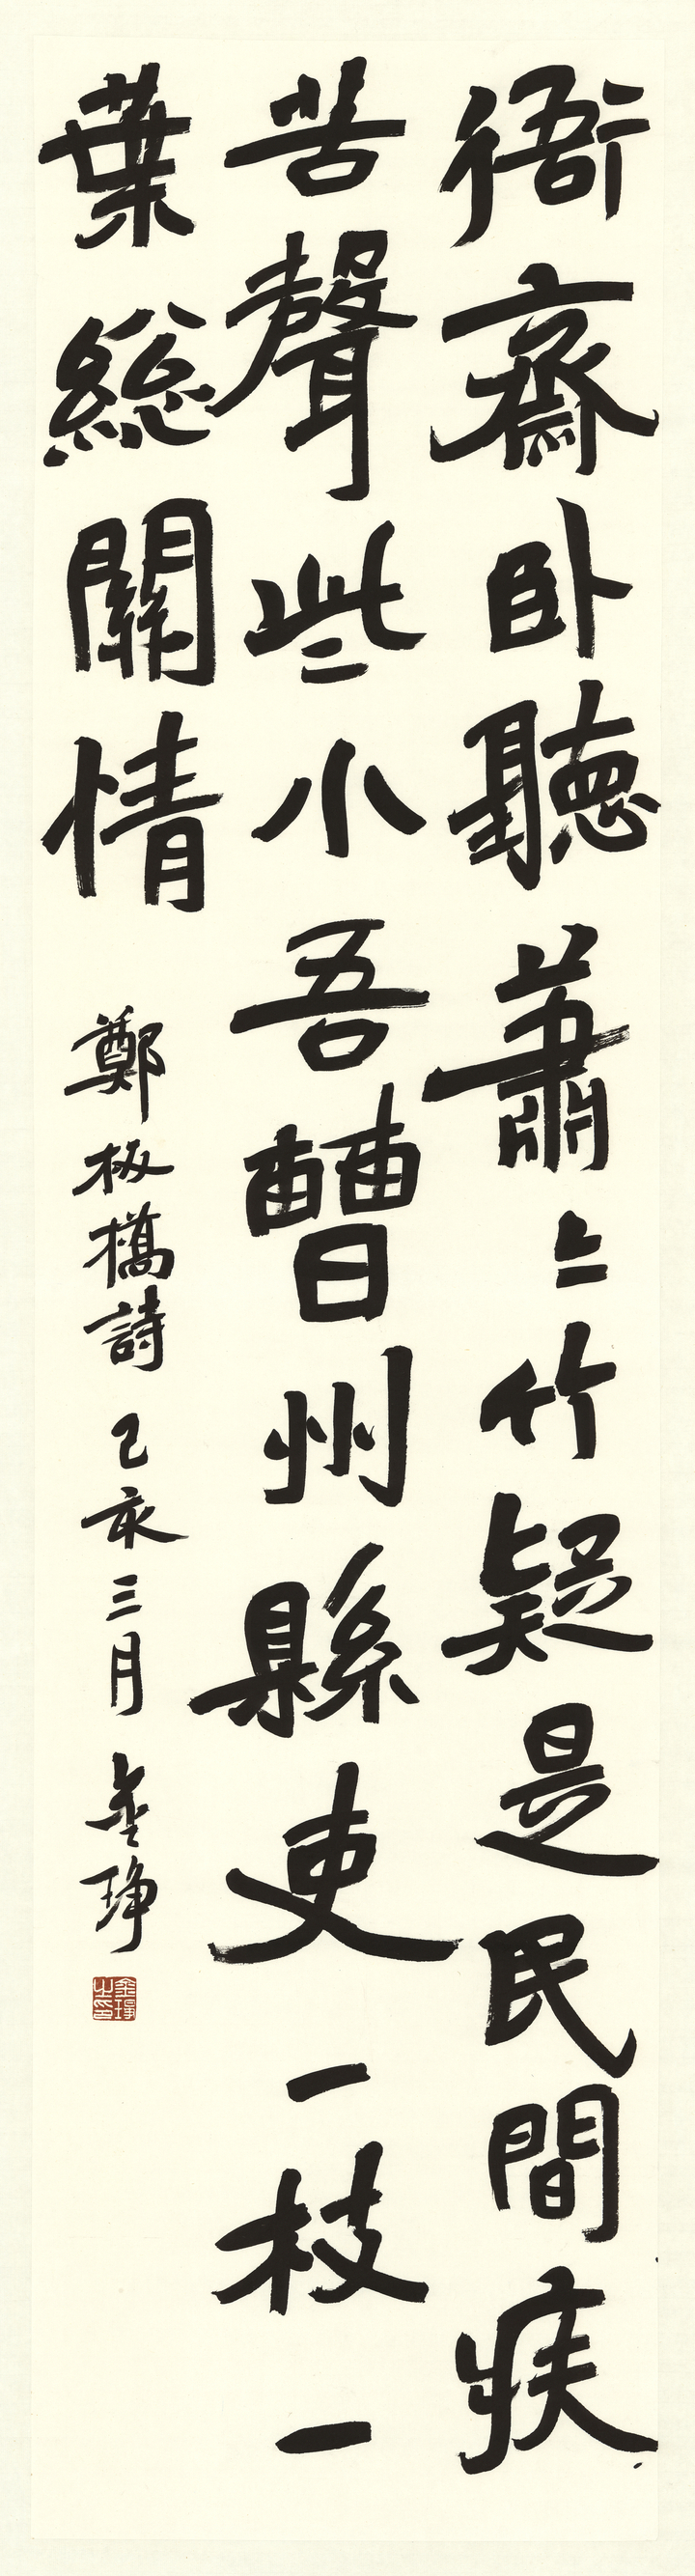 衙齋卧聽蕭〻竹疑是民間疾
苦聲些小吾曹州縣吏一枝一
葉總關情
鄭板橋詩己亥三月金琤
金琤之印